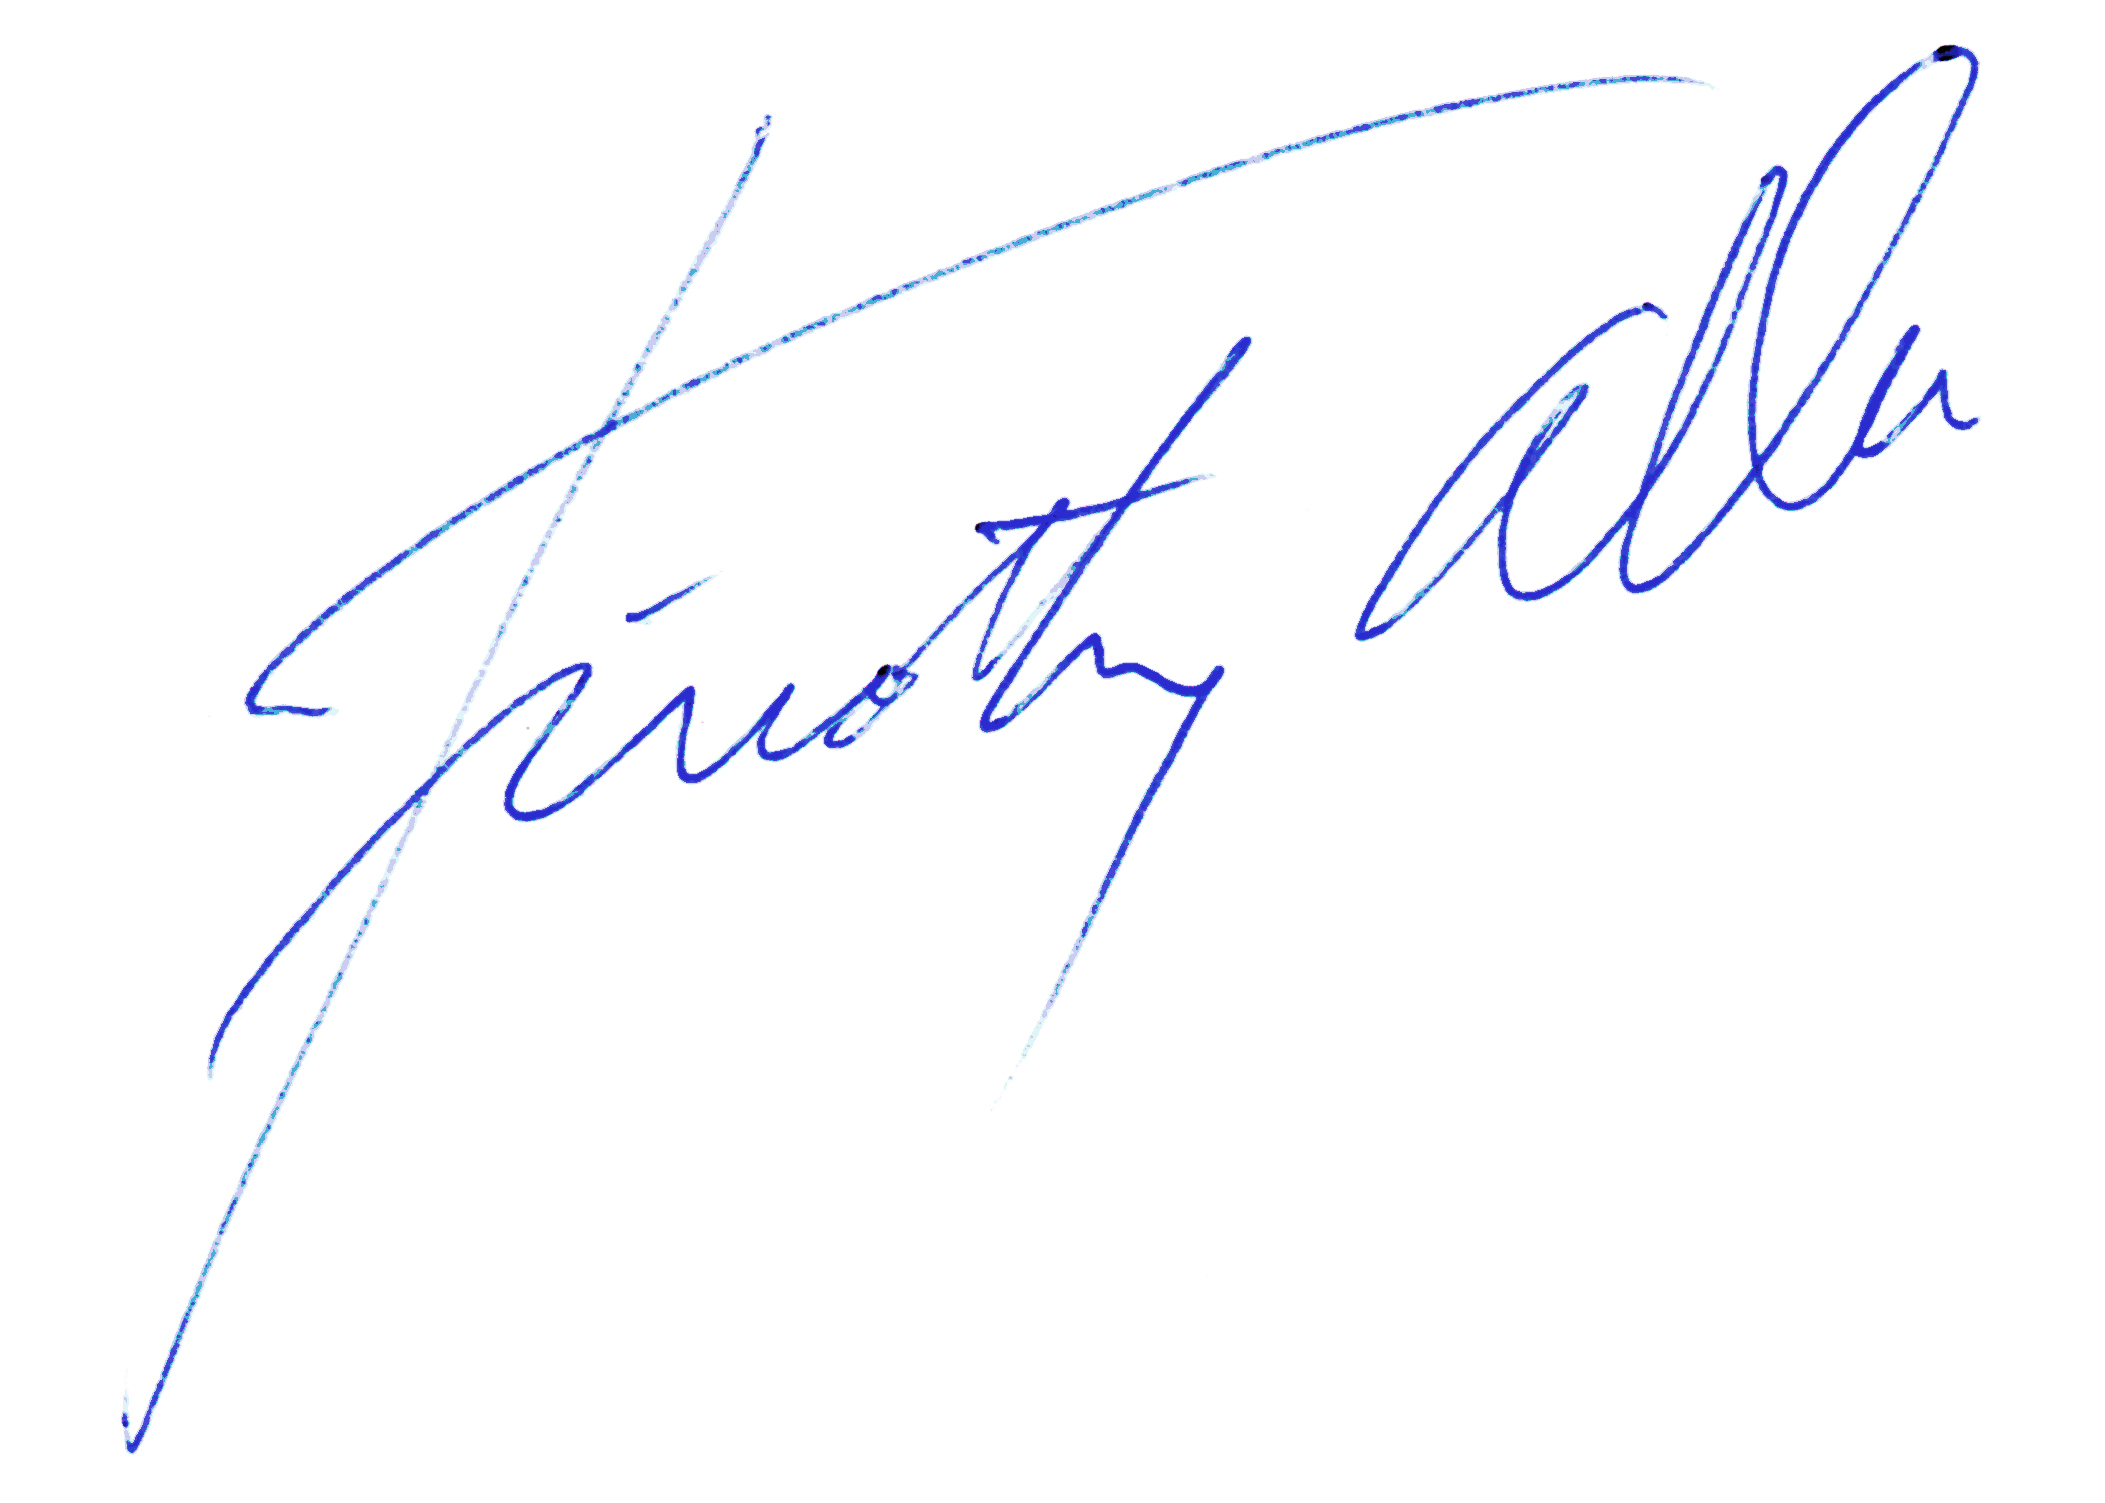 Timothy Allen